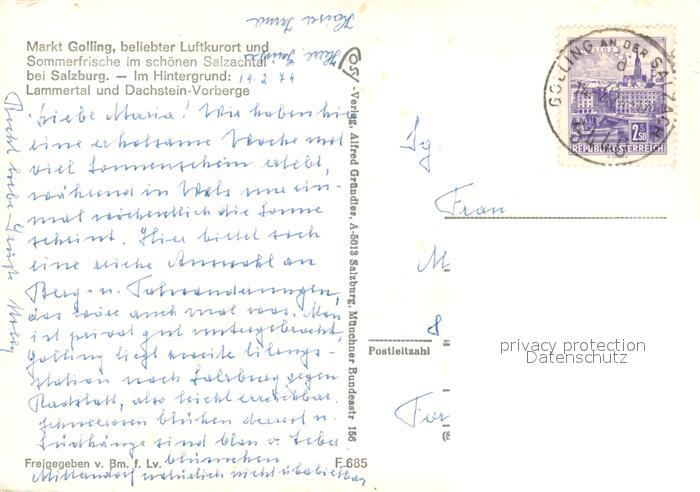 Markt Golling, beliebter Luftkurort und
Sommerfrische im schönen Salzachtal
bei Salzburg. — Im Hintergrund:
Lammertal und Dachstein-Vorberge
14.2.74
Liebe Maria! Wir haben hier
eine erholsame Woche mit
viel Sonnenschein erlebt,
während in Wels nur ein-
mal wöchentlich die Sonne
scheint. Hier bietet sich
eine reiche Auswahl an
Berg- u. Talwanderungen,
das wäre auch mal was. Man
ist privat gut untergebracht,
Golling liegt zweite
station nach Salzburg gegen
Radstatt, also leicht erreichbar.
Schneerosen blühen derzeit u.
Südhänge sind blau v. Leber-
blümchen
Mitterndorf natürlich nicht
Recht liebe Grüße
Verlag Alfred Gründler, A-5013 Salzburg, Münchner Bundesstr 156
Freigegeben v. Bm. f. Lv.
F 685
GOLLING AN DER SALZACH
2.50
REPUBLIK ÖSTERREICH
Frau
Postleitzahl
privacy protection
Datenschutz